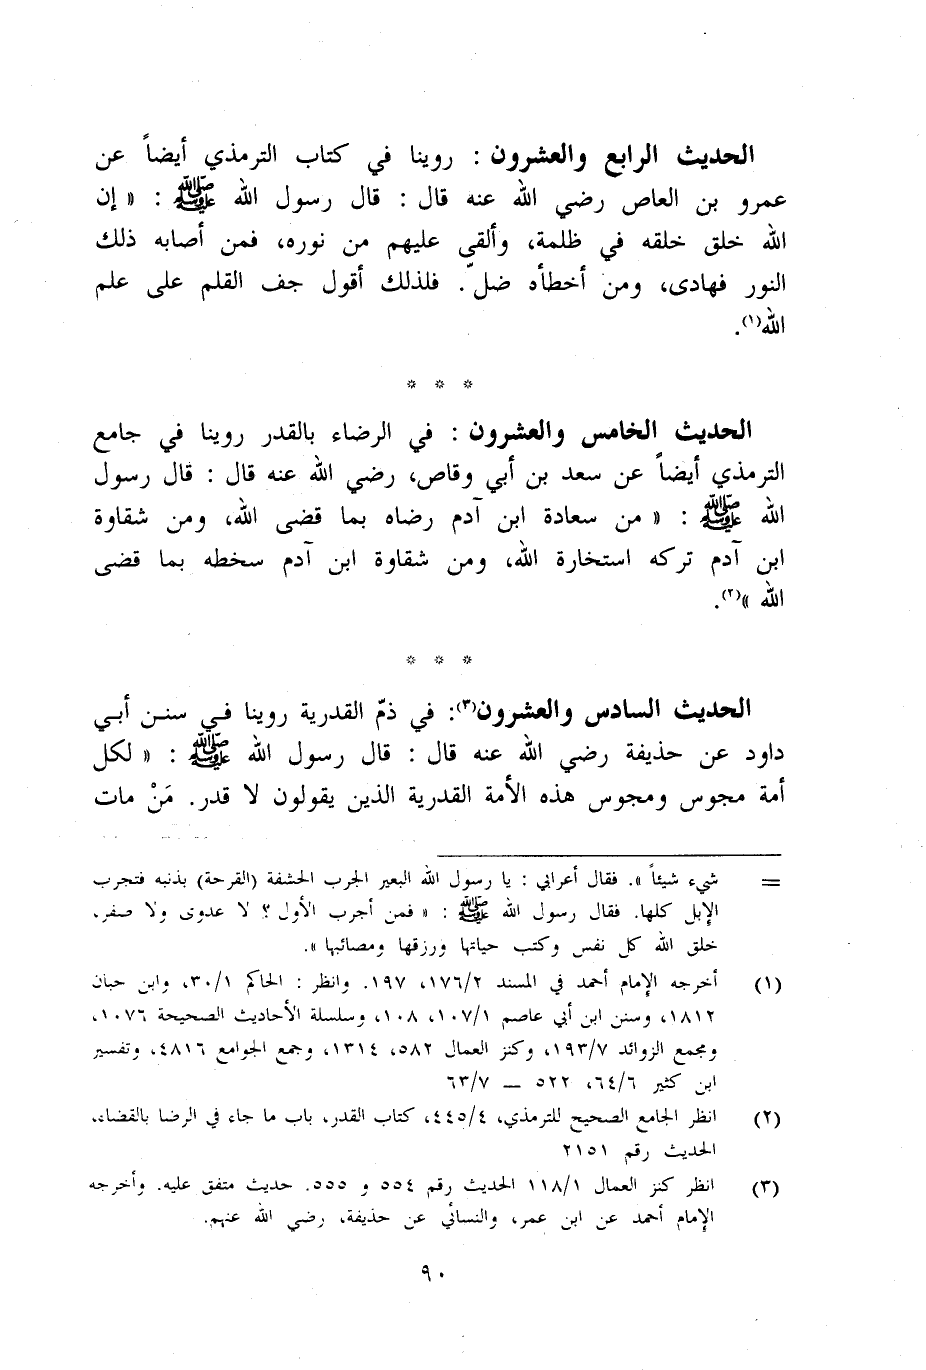 الحديث الرابع والعشرون : روينا في كتاب الترمذي أيضاً عن
عمرو بن العاص رضي الله عنه قال : قال رسول الله ﷺ : « إن
الله خلق خلقه في ظلمة، وألقى عليهم من نوره، فمن أصابه ذلك
النور فهادى، ومن أخطأه ضلّ. فلذلك أقول جف القلم على علم
الله(١).
* * *
الحديث الخامس والعشرون : في الرضاء بالقدر روينا في جامع
الترمذي أيضاً عن سعد بن أبي وقاص، رضي الله عنه قال : قال رسول
الله ﷺ : « من سعادة ابن آدم رضاه بما قضى الله، ومن شقاوة
ابن آدم تركه استخارة الله، ومن شقاوة ابن آدم سخطه بما قضى
الله »(٢).
* * *
الحديث السادس والعشرون(٣): في ذمّ القدرية روينا في سنن أبي
داود عن حذيفة رضي الله عنه قال : قال رسول الله ﷺ : « لكل
أمة مجوس ومجوس هذه الأمة القدرية الذين يقولون لا قدر. مَنْ مات
= شيء شيئاً ». فقال أعرابي : يا رسول الله البعير الجرب الحشفة (القرحة) بذنبه فتجرب
الإبل كلها. فقال رسول الله ﷺ : « فمن أجرب الأول ؟ لا عدوى ولا صفر.
خلق الله كل نفس وكتب حياتها ورزقها ومصائبها ».
(١) أخرجه الإمام أحمد في المسند ١٧٦/٢، ١٩٧. وانظر : الحاكم ٣٠/١، وابن حبان
١٨١٢، وسنن ابن أبي عاصم ١٠٧/١، ١٠٨، وسلسلة الأحاديث الصحيحة ١٠٧٦،
ومجمع الزوائد ١٩٣/٧، وكنز العمال ٥٨٢، ١٣١٤، وجمع الجوامع ٤٨١٦، وتفسير
ابن كثير ٦٤/٦، ٥٢٢ — ٦٣/٧
(٢) انظر الجامع الصحيح للترمذي، ٤٤٥/٤، كتاب القدر، باب ما جاء في الرضا بالقضاء،
الحديث رقم ٢١٥١
(٣) انظر كنز العمال ١١٨/١ الحديث رقم ٥٥٤ و ٥٥٥. حديث متفق عليه. وأخرجه
الإمام أحمد عن ابن عمر، والنسائي عن حذيفة، رضي الله عنهم.
٩٠